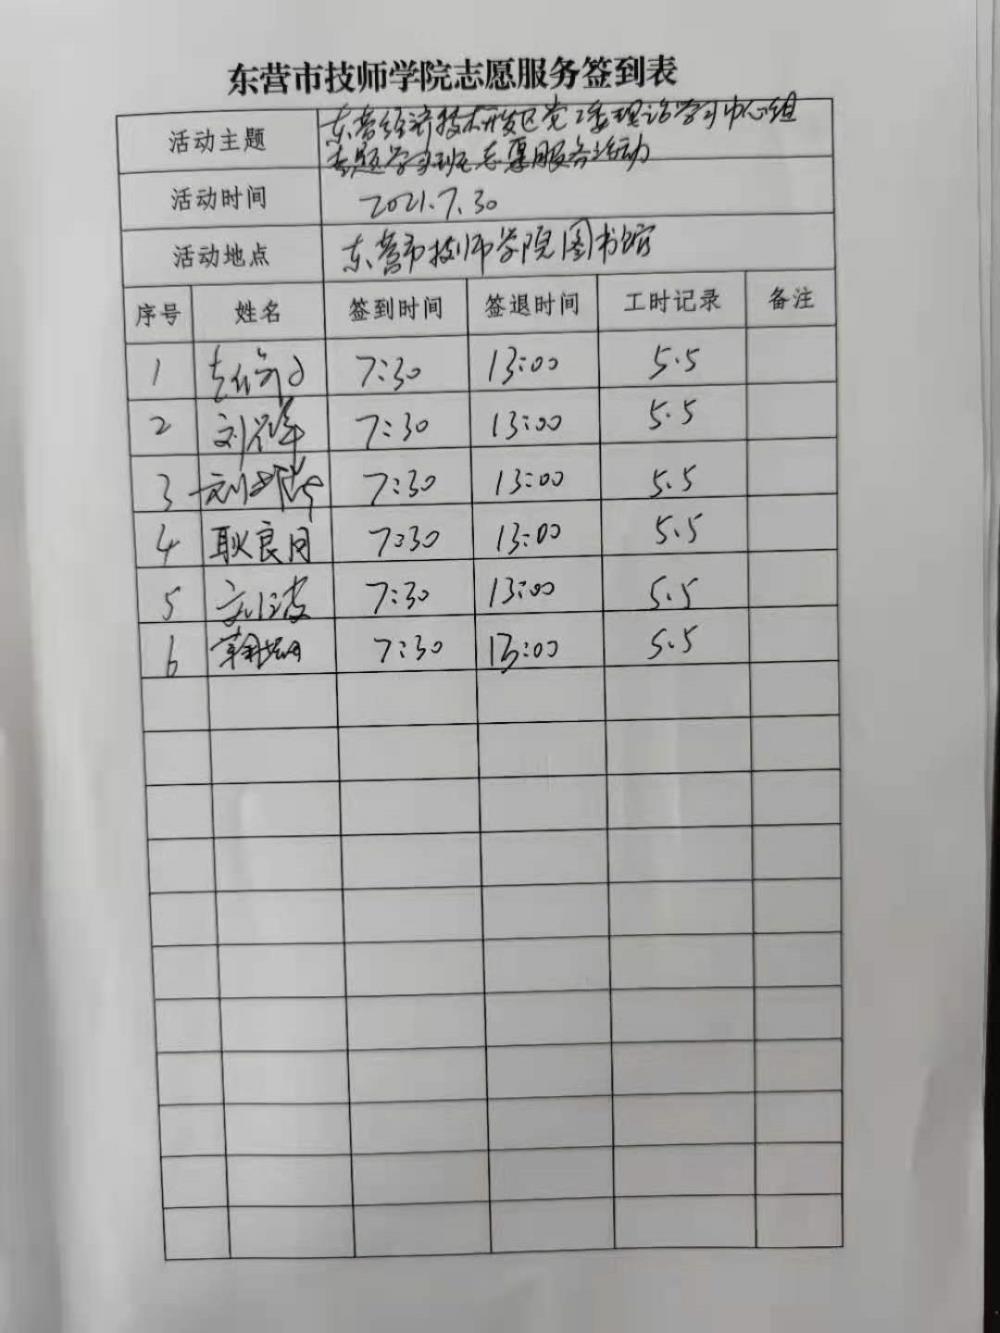 东营市技师学院志愿服务签到表
活动主题 东营经济技术开发区党工委理论学习中心组
专题学习班志愿服务活动
活动时间 2021.7.30
活动地点 东营市技师学院图书馆
序号 姓名 签到时间 签退时间 工时记录 备注
1 7:30 13:00 5.5
2 刘 7:30 13:00 5.5
3 刘 7:30 13:00 5.5
4 耿良月 7:30 13:00 5.5
5 7:30 13:00 5.5
6 7:30 13:00 5.5